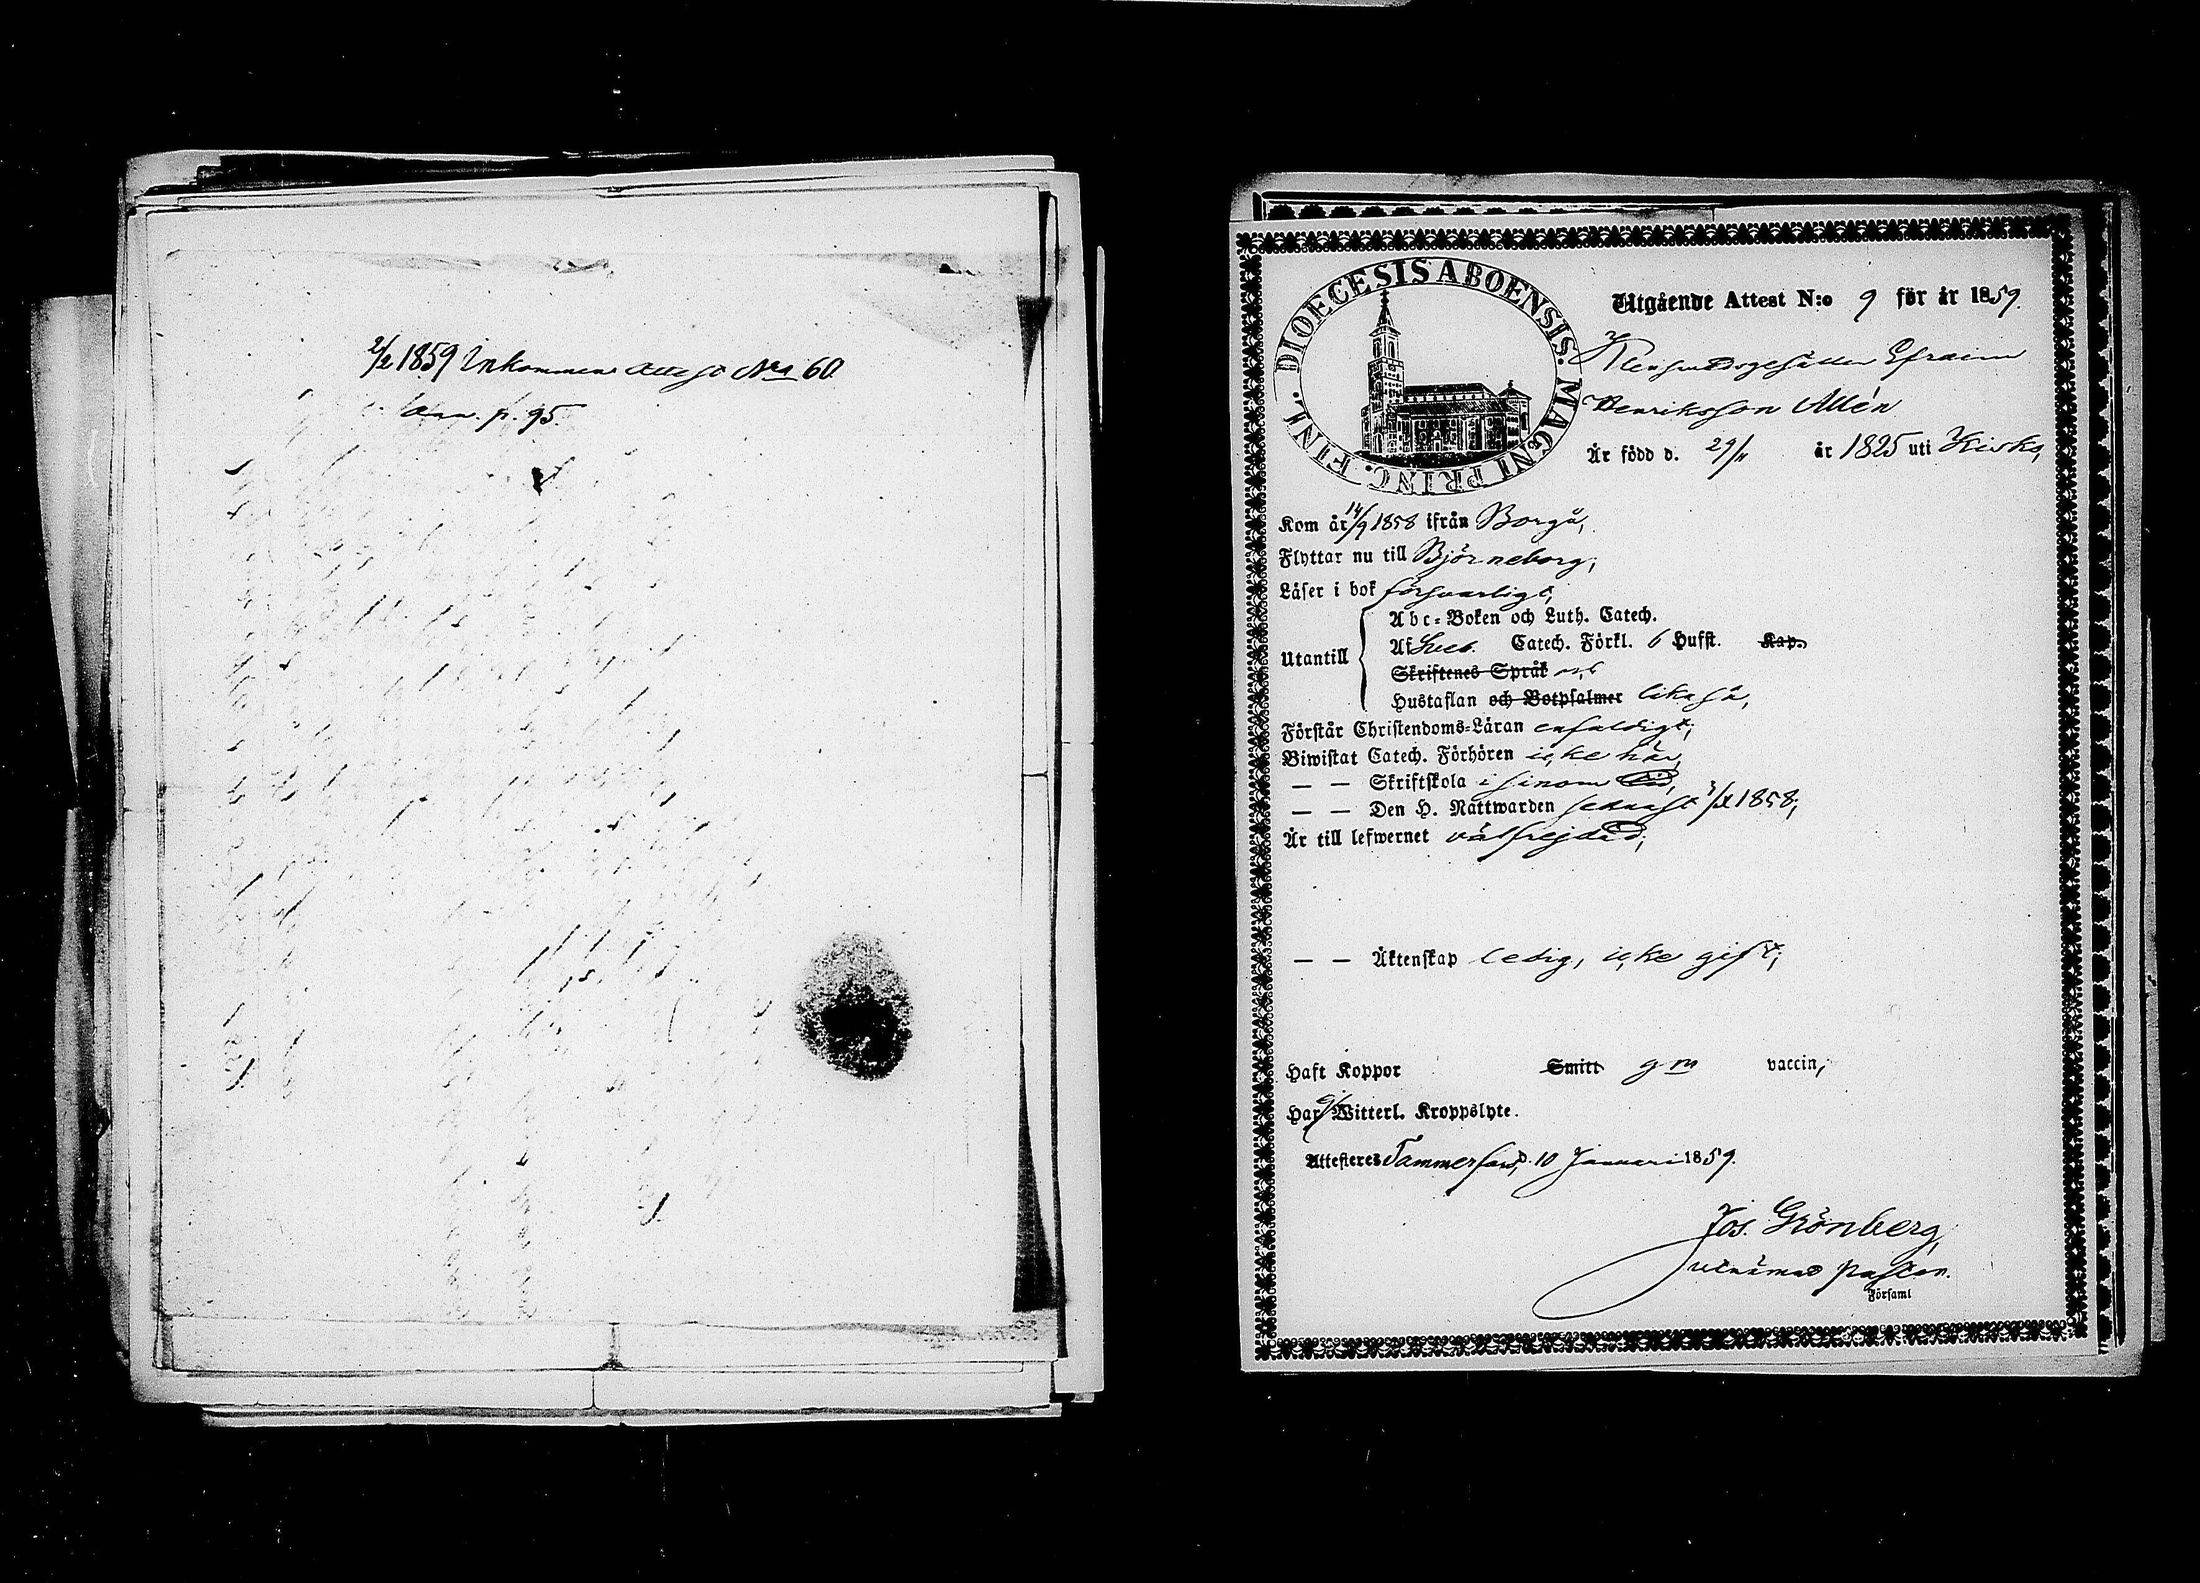 2/2 1859 Inkommen attest No 60
Ann. p. 95.
DIOECESIS ABOENSIS. MAGNI PRINC. FINL.
Utgående Attest N:o 9 för år 1859.
Klensmedsgesällen Efraim
Henriksson Allén
Är född d. 29/11 år 1825 uti Kisko,
Kom år 14/9 1858 ifrån Borgå,
Flyttar nu till Björneborg,
Läser i bok försvarligt,
Utantill
Abc-Boken och Luth. Catech.
Af Sveb. Catech. Förkl. 6 Hufst. Kap.
Skriftenes Språk och
Hustaflan och Botpsalmer likaså,
Förstår Christendoms-Läran enfaldigt,
Biwistat Catech. Förhören icke här,
— — Skriftskola i sinom tid,
— — Den H. Nattwarden senast 3/X 1858,
Är till lefwernet välfrejdad,
— — Äktenskap ledig, icke gift,
Haft Koppor Smitt gm vaccin,
Har ej Witterl. Kroppslyte.
Attesteres Tammerfors, d. 10 Januari 1859.
Jos. Grönberg,
utnämnd Pastor.
Församl